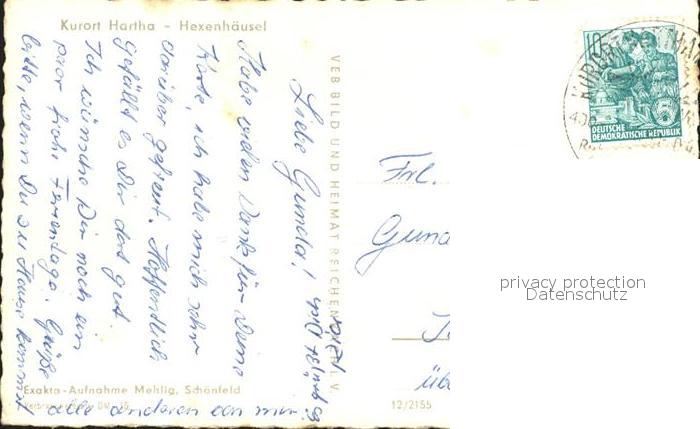 Kurort Hartha - Hexenhäusel
Liebe Gunda!
Habe vielen Dank für Deine
Karte, ich habe mich sehr
darüber gefreut. Hoffentlich
gefällt es Dir dort gut.
Ich wünsche Dir noch ein
paar frohe Ferientage. Grüße
bitte, wenn Du zu Hause kommst
alle anderen von mir.
Es grüßt Dich
VEB BILD UND HEIMAT REICHEN I. V.
Exakta-Aufnahme Mehlig, Schönfeld
12/2155
Frl.
10
5
DEUTSCHE
DEMOKRATISCHE REPUBLIK
KURORT
privacy protection
Datenschutz